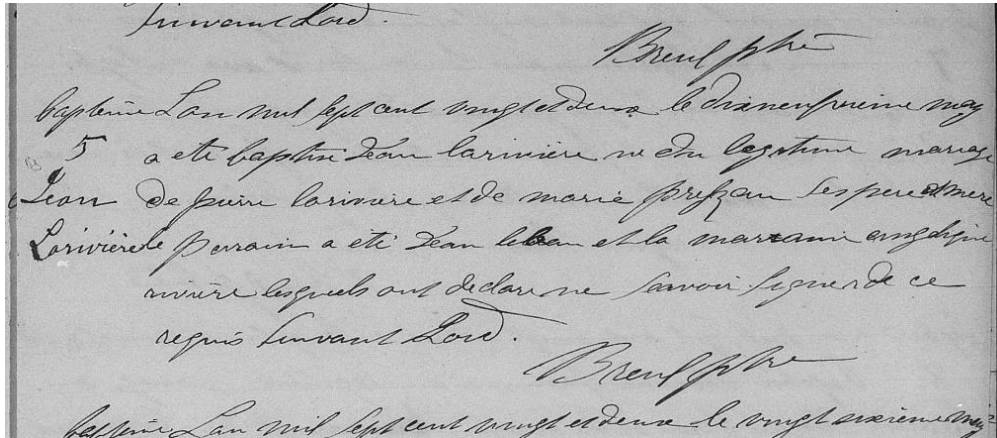 suivant Lord.
Breul ptre
baptême Lan mil sept cent vingt et deux le dixneufvieme may
5 a eté baptisé Jéan lariviere né du legitime mariage
Jean de pierre lariviere et de marie ses pere et mere
Larivière le parrain a eté Jéan lebeau et la marraine angelique
riviere lesquels ont declare ne savoir signer de ce
requis suivant Lord.
Breul ptre
baptême Lan mil sept cent vingt et deux le vingt sixieme may